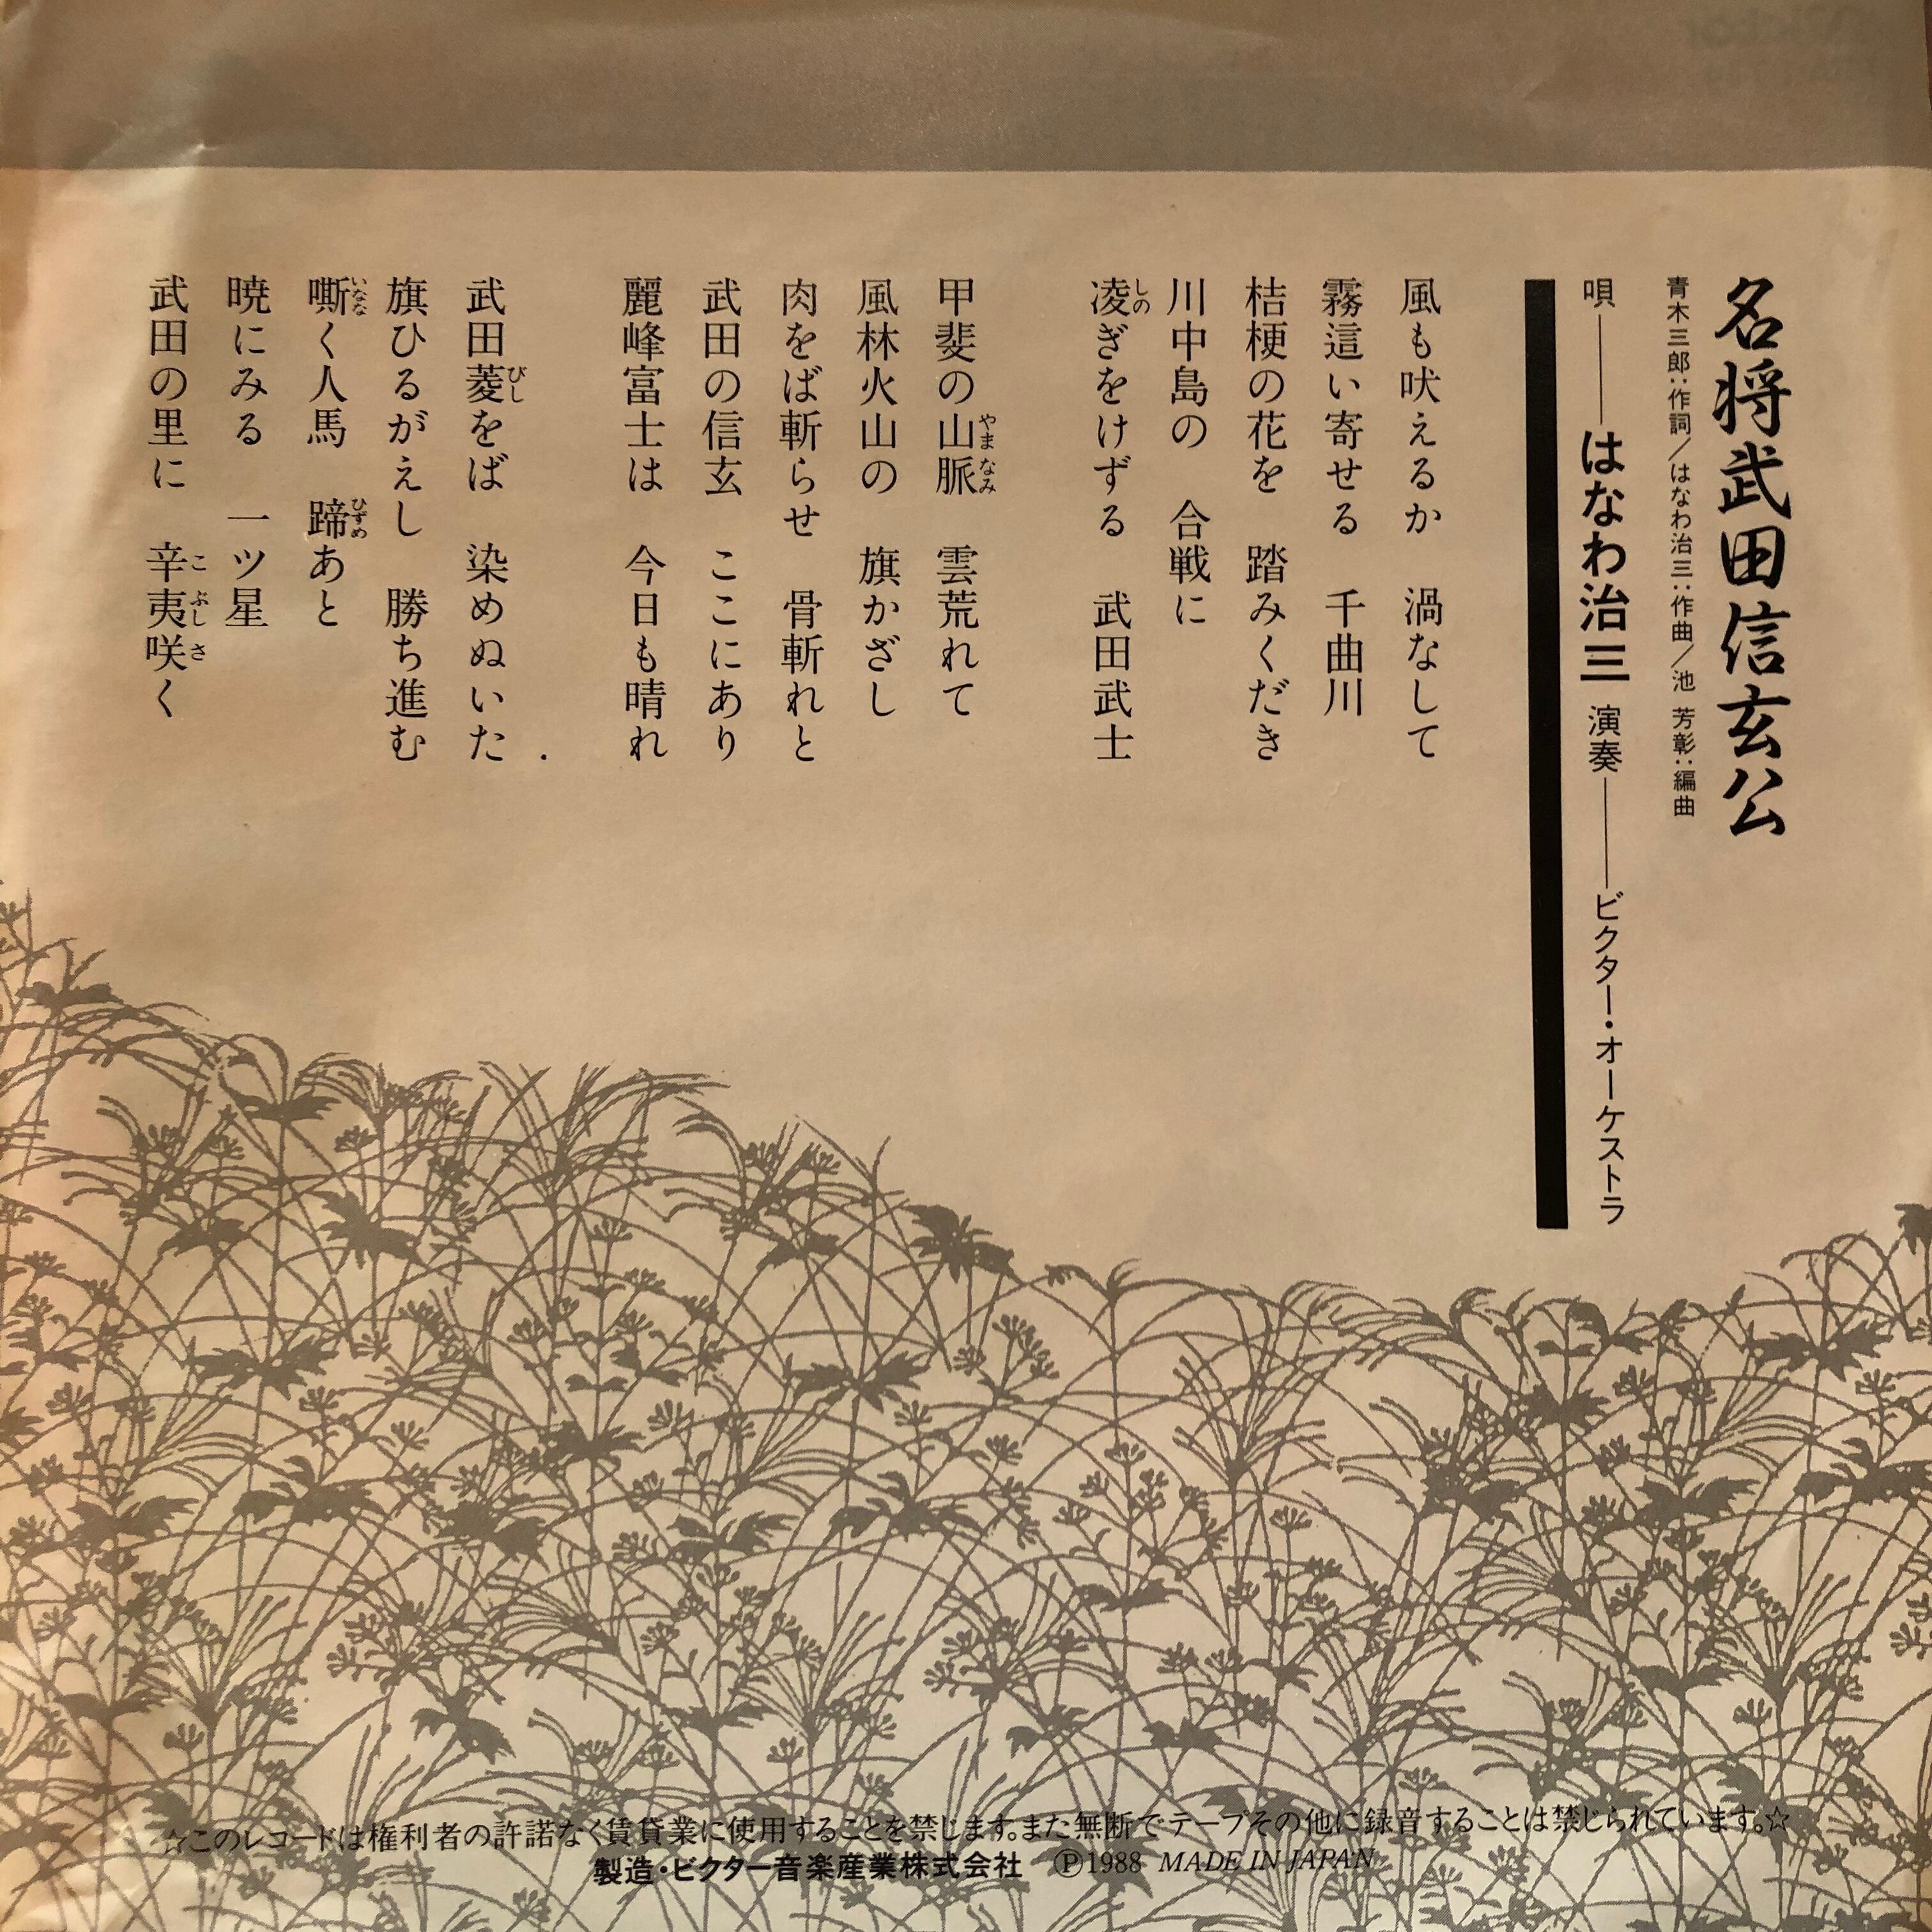 名将武田信玄公
青木三郎:作詞/はなわ治三:作曲/池 芳彰:編曲
唄――はなわ治三 演奏――ビクター・オーケストラ
風も吠えるか 渦なして
霧這い寄せる 千曲川
桔梗の花を 踏みくだき
川中島の 合戦に
凌ぎをけずる 武田武士
甲斐の山脈 雲荒れて
風林火山の 旗かざし
肉をば斬らせ 骨斬れと
武田の信玄 ここにあり
麗峰富士は 今日も晴れ
武田菱をば 染めぬいた
旗ひるがえし 勝ち進む
嘶く人馬 蹄あと
暁にみる 一ツ星
武田の里に 辛夷咲く
☆このレコードは権利者の許諾なく賃貸業に使用することを禁じます。また無断でテープその他に録音することは禁じられています。☆
製造・ビクター音楽産業株式会社 Ⓟ1988 MADE IN JAPAN